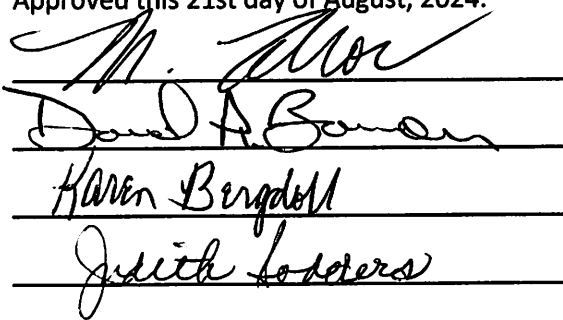 Approved this 21st day of August, 2024.
M.
David A. Bowden
Karen Bergdoll
Judith Lodders